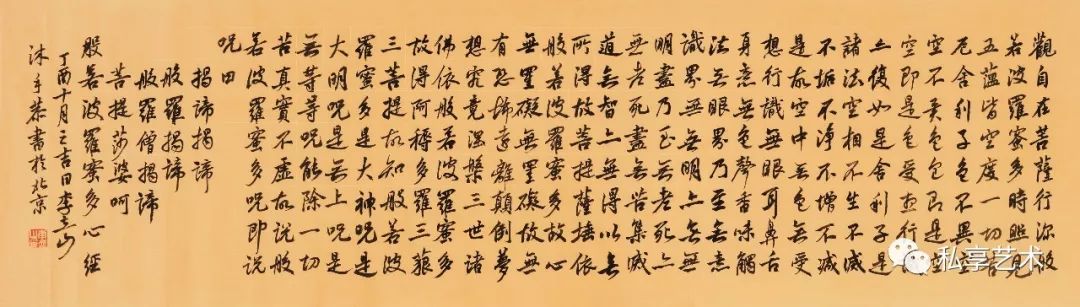 觀自在菩薩行深般
若波羅蜜多時照見
五蘊皆空度一切苦
厄舍利子色不異空
空不異色色即是空
空即是色受想行識
亦復如是舍利子是
諸法空相不生不滅
不垢不淨不增不減
是故空中無色無受
想行識無眼耳鼻舌
身意無色聲香味觸
法無眼界乃至無意
識界無無明亦無無
明盡乃至無老死亦
無老死盡無苦集滅
道無智亦無得以無
所得故菩提薩埵依
般若波羅蜜多故心
無罣礙無罣礙故無
有恐怖遠離顛倒夢
想究竟涅槃三世諸
佛依般若波羅蜜多
故得阿耨多羅三藐
三菩提故知般若波
羅蜜多是大神呪是
大明呪是無上呪是
無等等呪能除一切
苦真實不虛故說般
若波羅蜜多呪即說
呪曰
揭諦揭諦
般羅揭諦
般羅僧揭諦
菩提莎婆呵
般若波羅蜜多心經
丁酉十月之吉日李立山
沐手恭書於北京
私享艺术